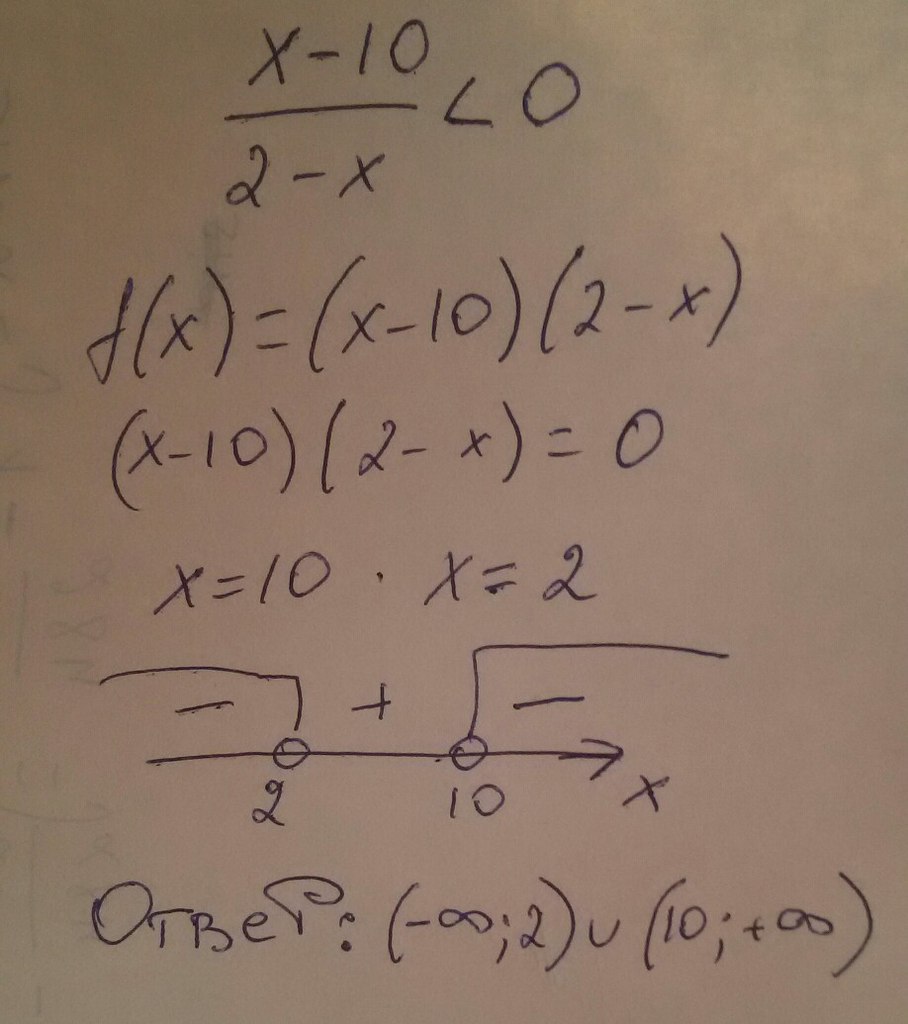 x-10
—— < 0
2-x
f(x)=(x-10)(2-x)
(x-10)(2-x)=0
x=10 · x=2
- + -
2 10 x
Ответ: (-∞;2)∪(10;+∞)